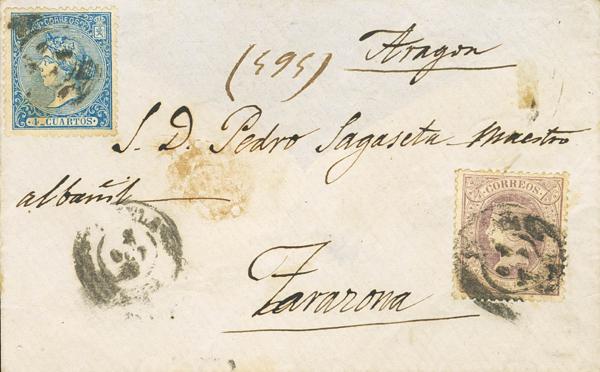 Aragon
(595)
S. D. Pedro Sagaseta Maestro
albañil
Tarazona
4 CUARTOS
CORREOS